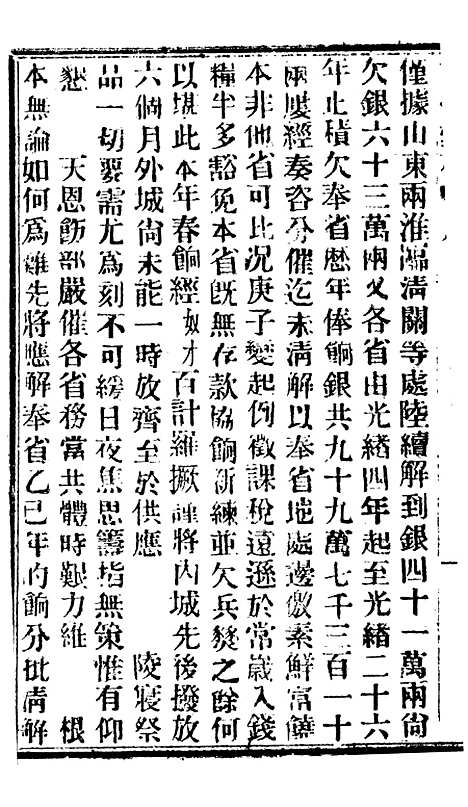 僅據山東兩淮臨清關等處陸續解到銀四十一萬兩尙
欠銀六十三萬兩又各省由光緒四年起至光緒二十六
年止積欠奉省歷年俸餉銀共九十九萬七千三百一十
兩屢經奏咨分催迄未淸解以奉省地處邊儌素鮮富饒
本非他省可比况庚子變起例徵課稅遠遜於常歲入錢
糧半多豁免本省旣無存款協餉新練並欠兵燹之餘何
以堪此本年春餉經奴才百計羅掘謹將內城先後撥放
六個月外城尙未能一時放齊至於供應　陵寢祭
品一切要需尤爲刻不可緩日夜焦思籌措無策惟有仰
懇　天恩飭部嚴催各省務當共體時艱力維　根
本無論如何爲難先將應解奉省乙巳年的餉分批淸解